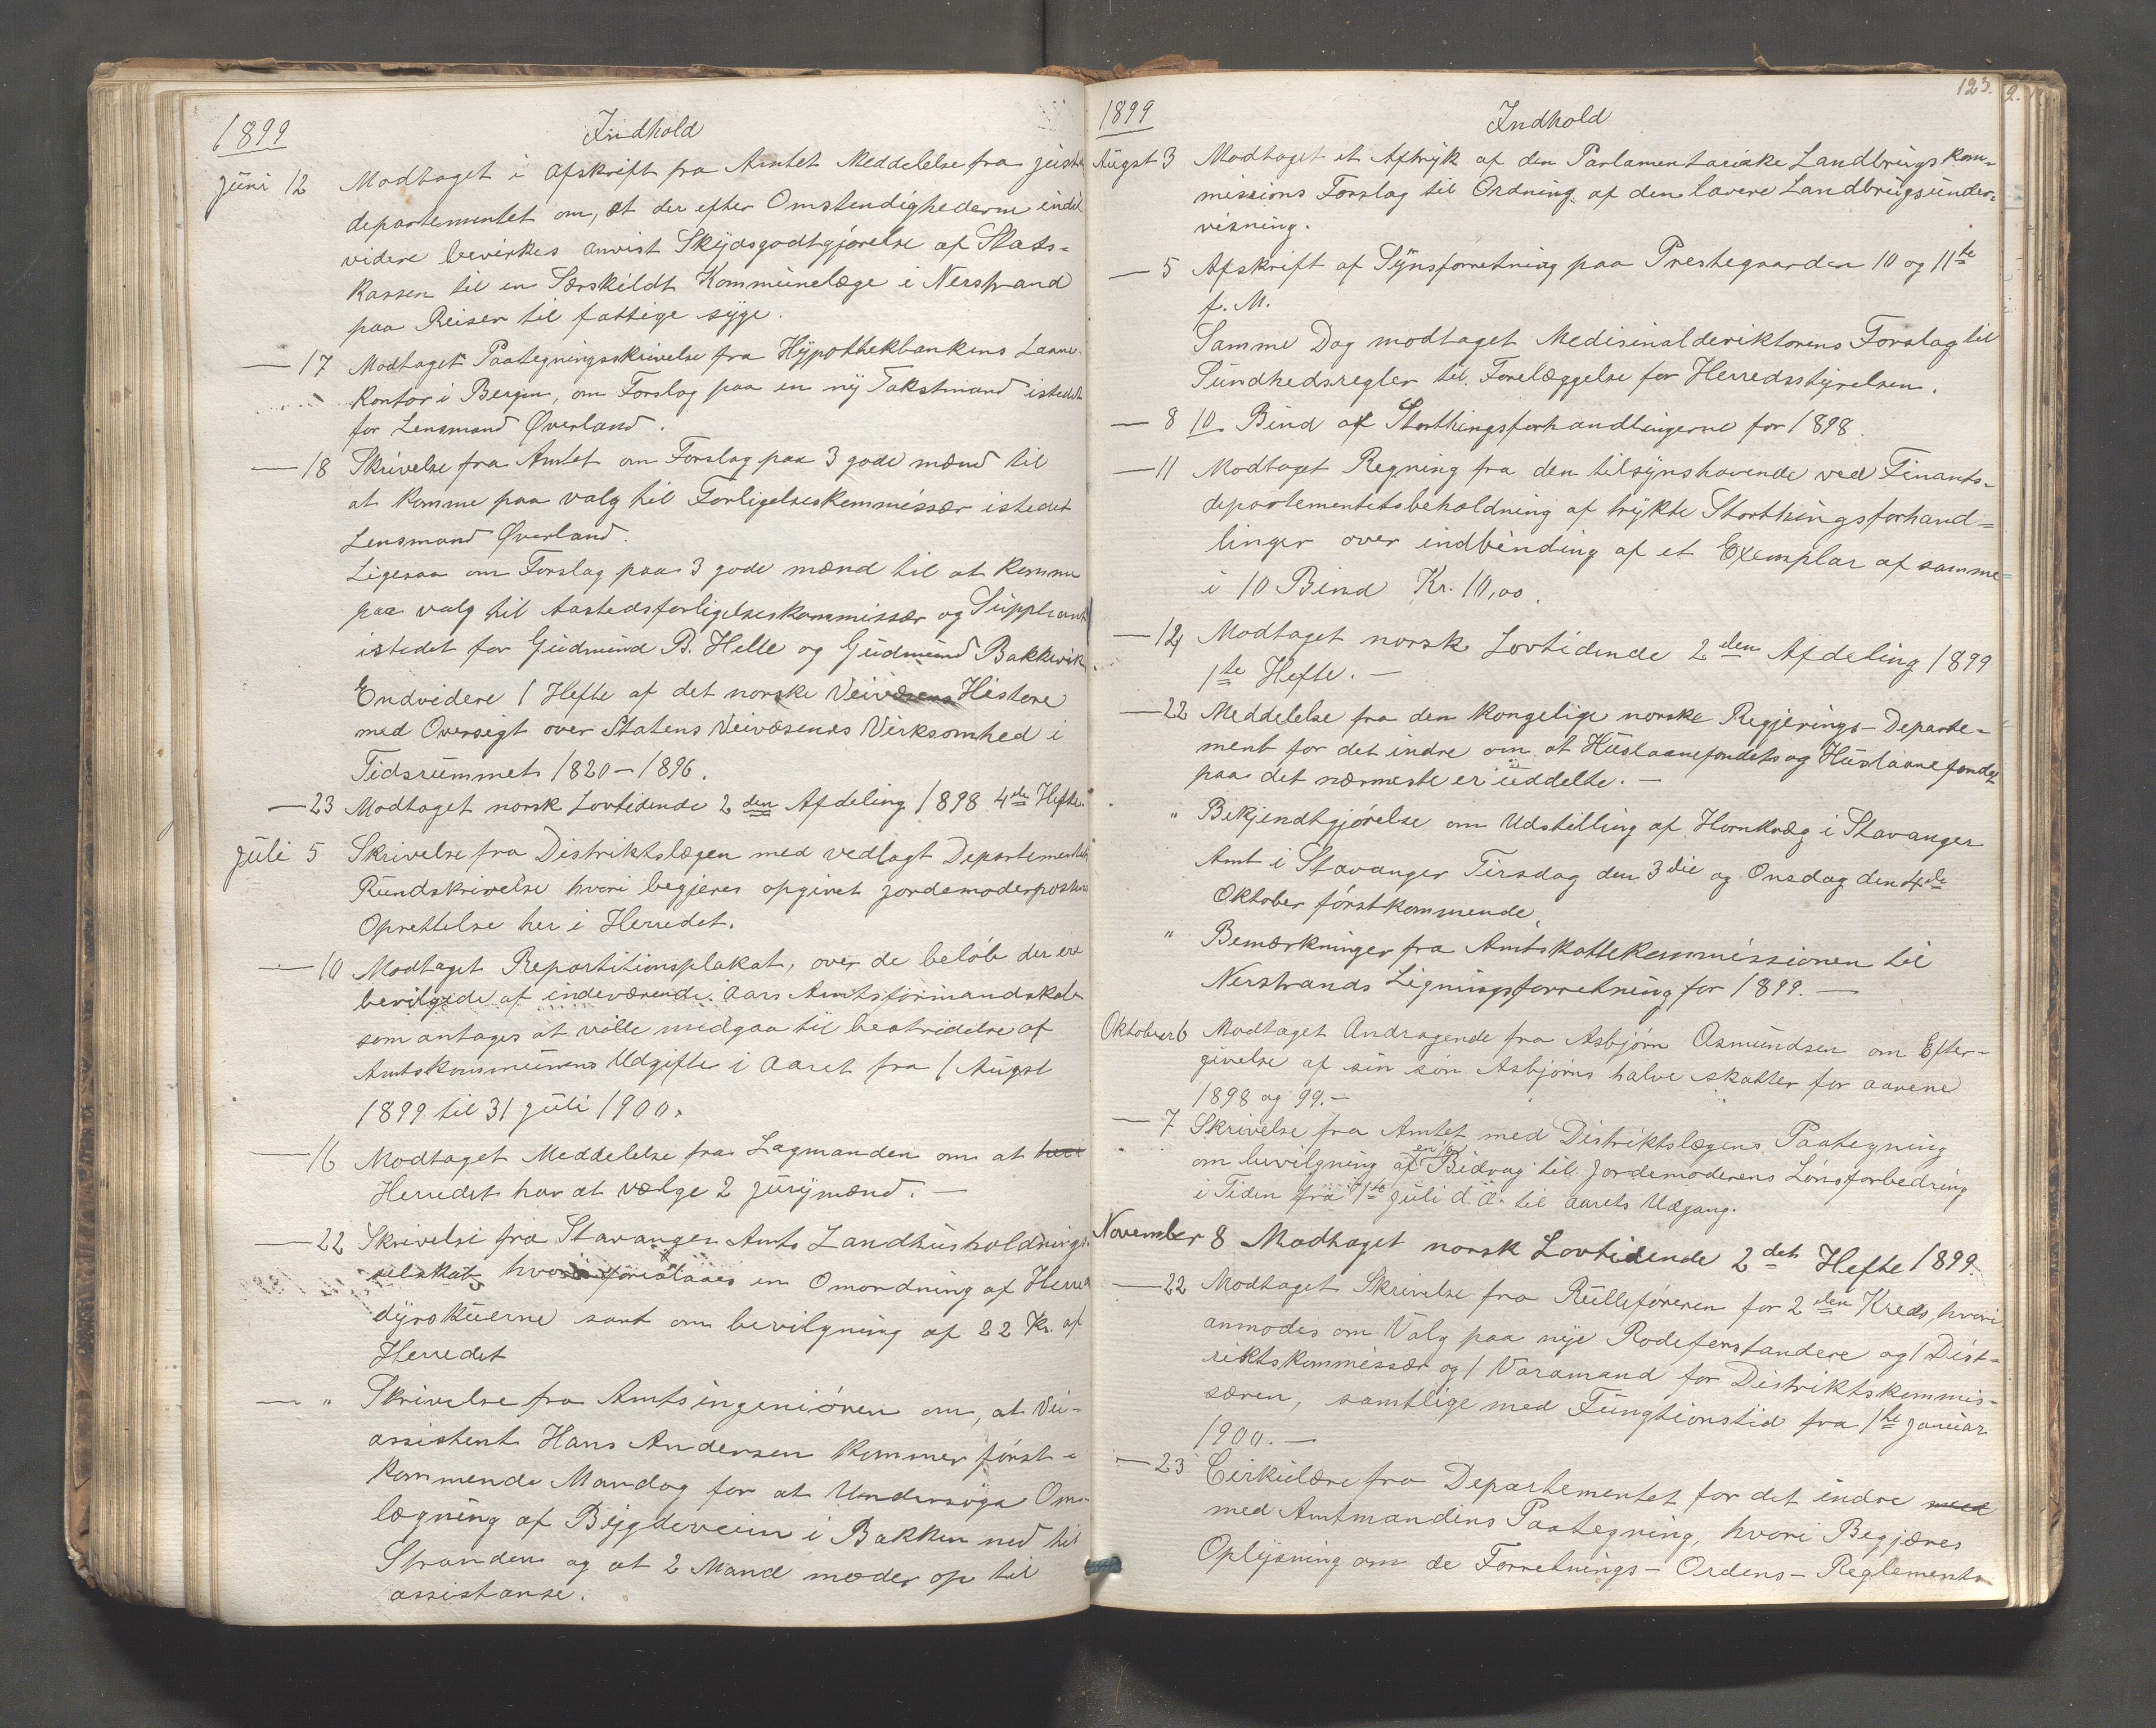 1899 Indhold
Juni 12 Modtaget i Afskrift fra Amtet Meddelelse fra Juste
departementet om, at der efter Omstendighederne indtil
videre bevirkes anvist Skydsgodtgjørelse af Stats-
kassen til en Særskildt Kommunelæge i Nerstrand
paa Reiser til fattige syge.
— 17 Modtaget Paategningsskrivelse fra Hypothekbankens Laane-
kontor i Bergen, om Forslag paa en ny Takstmand istedet
for Lensmand Øverland.
— 18 Skrivelse fra Amtet om Forslag paa 3 gode mænd til
at komme paa valg til Forligelseskommissær istedet
Lensmand Øverland.
Ligesaa om Forslag paa 3 gode mænd til at komme
paa valg til Aastedsforligelseskommissær og Suppleant
istedet for Gudmund B. Helle og Gudmund Bakkevik
Endvidere 1 Hefte af det norske Veivæsens Histore
med Oversigt over Statens Veivæsenes Virksomhed i
Tidsrummet 1820–1896.
— 23 Modtaget norsk Lovtidende 2den Afdeling 1898 4de Hefte.
Juli 5 Skrivelse fra Distriktslægen med vedlagt Departementets
Rundskrivelse hvori begjeres opgivet Jordemoderposters
Oprettelse her i Herredet.
— 10 Modtaget Repartitionsplakat, over de beløb der ere
bevilgede af indeværende Aars Amtsformandskab
som antages at ville medgaa til bestridelse af
Amtskommunens Udgifter i Aaret fra 1 August
1899 til 31 Juli 1900.
— 16 Modtaget Meddelelse fra Lagmanden om at heri
Herredet har at vælge 2 Jurymænd. —
— 22 Skrivelse fra Stavanger Amts Landhusholdnings-
selskab hvori foreslaaes en Omordning af Herreds
dyrskuerne samt om bevilgning af 22 Kr. af
Herredet
— " Skrivelse fra Amtsingeniøren om, at Vei-
assistent Hans Andersen kommer først-
kommende Mandag for at Undersøge Om-
lægning af Bygdeveien i Bakken ned til
Stranden og at 2 Mand møder op til
assistanse.
123. 2.
1899 Indhold
August 3 Modtaget et Aftryk af den Parlamentariske Landbrugskom-
missions Forslag til Ordning af den lavere Landbrugsunder-
visning.
— 5 Afskrift af Synsforretning paa Prestegaarden 10 og 11te
f. M.
Samme Dag modtaget Medisinalderiktorens Forslag til
Sundhedsregler til Forelæggelse for Herredsstyrelsen.
— 8 10. Bind af Storthingsforhandlingerne for 1898.
— 11 Modtaget Regning fra den tilsynshavende ved Finants-
departementetsbeholdning af trykte Storthingsforhand-
linger over indbinding af et Exemplar af samme
i 10 Bind Kr. 10,00.
— 14 Modtaget norsk Lovtidende 2den Afdeling 1899
1te Hefte. —
— 22 Meddelelse fra den kongelige norske Regjerings-Departe-
ment for det indre om at Huslaanefondets og Huslaanefondet
paa det nærmeste er uddelte. —
" Bekjendtgjørelse om Udstilling af Hornkvæg i Stavanger
Amt i Stavanger Tirsdag den 3die og Onsdag den 4de
Oktober førstkommende.
" Bemærkninger fra Amtskattekommissionen til
Nerstrands Ligningsforretning for 1899. —
Oktober 6 Modtaget Andragende fra Asbjørn Osmundsen om Efter-
givelse af sin søn Asbjørns halve skatter for aarene
1898 og 99. —
— 7 Skrivelse fra Amtet med Distriktslægens Paategning
om bevilgning af Bidrag til Jordemoderens Lønsforbedring
i Tiden fra 1te Juli d. A. til Aarets Udgang.
November 8 Modtaget norsk Lovtidende 2det Hefte 1899.
— 22 Modtaget Skrivelse fra Rulleføreren for 2den Kreds, hvori
anmodes om Valg paa nye Rodeforstandere og 1 Dist-
riktskommissær og 1 Varamand for Distriktskommis-
særen, samtlige med Fungtionstid fra 1te Januar
1900. —
— 23 Cirkulære fra Departementet for det indre med
med Amtmandens Paategning, hvori Begjæres
Oplysning om de Forretnings-Ordens-Reglements